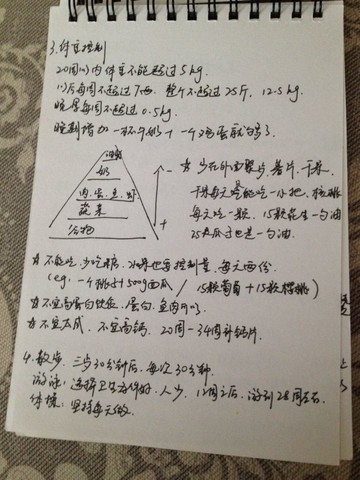 3. 体重控制
20周(w)内体重不能超过5kg.
以后每周不超过1斤, 整个不超过25斤, 12.5kg.
晚期每周不超过0.5kg.
晚期增加一杯牛奶+一个鸡蛋就够了
油脂
奶
肉、蛋、鱼、虾
蔬果
谷物
-
+
☆ 少在外面聚步、薯片、干果,
干果每天只能吃一小把, 核桃
每天吃一颗, 15颗花生一勺油
25粒瓜子也是一勺油.
☆ 不能吃, 少吃糖, 水果也要控制量, 每天两份
(eg: 一个桃子+500g西瓜 / 15颗葡萄+15颗樱桃)
☆ 不宜高蛋白饮食, 蛋白、鱼肉可以.
☆ 不宜太咸, 不宜高钙, 20周-34周补钙片.
4. 散步, 三步30分钟后, 每次30分钟.
游泳: 选择卫生条件好, 人少, 12周之后, 游到28周左右.
体操: 坚持每天做.